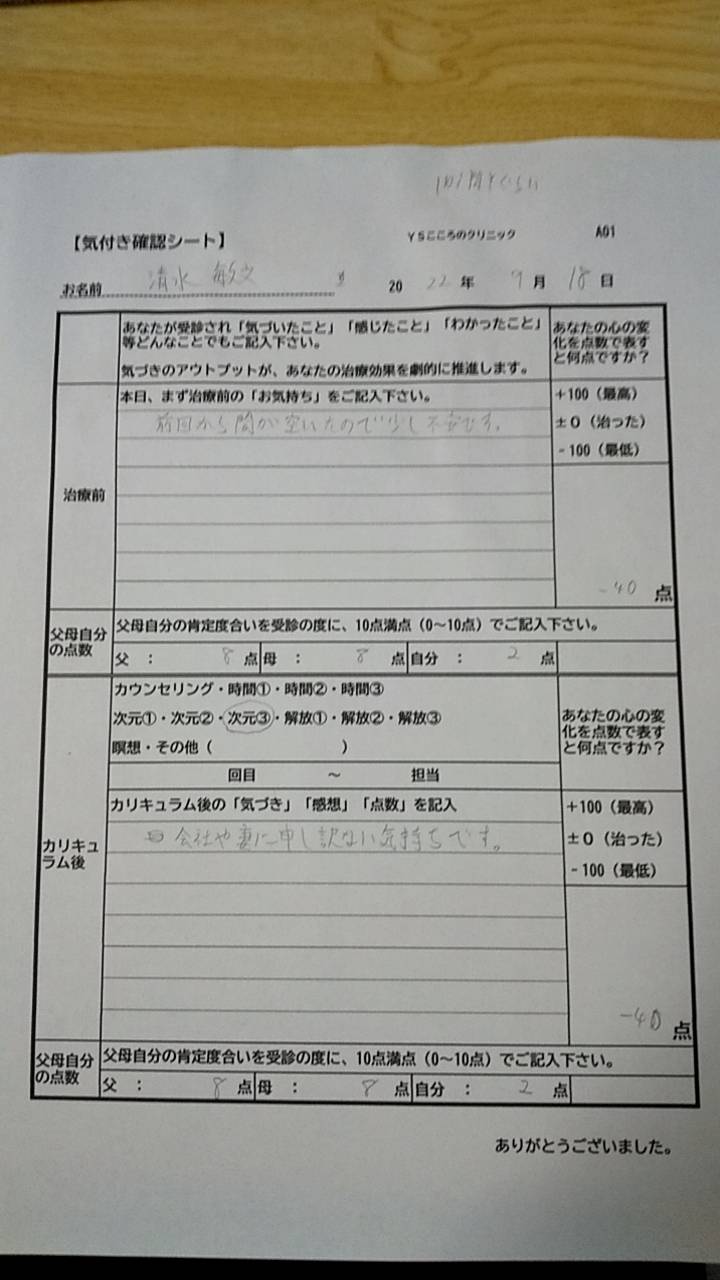 【気付き確認シート】
YSこころのクリニック
A01
お名前 清水 敏文
20 22 年 9 月 18 日
あなたが受診され「気づいたこと」「感じたこと」「わかったこと」
等どんなことでもご記入下さい。
気づきのアウトプットが、あなたの治療効果を劇的に推進します。
あなたの心の変
化を点数で表す
と何点ですか？
治療前
本日、まず治療前の「お気持ち」をご記入下さい。
前回から間が空いたので少し不安です。
+100（最高）
±0（治った）
-100（最低）
-40 点
父母自分
の点数
父母自分の肯定度合いを受診の度に、10点満点（0〜10点）でご記入下さい。
父 ： 8 点 母 ： 8 点 自分 ： 2 点
カリキュ
ラム後
カウンセリング・時間①・時間②・時間③
次元①・次元②・次元③・解放①・解放②・解放③
瞑想・その他（ ）
回目 〜 担当
あなたの心の変
化を点数で表す
と何点ですか？
カリキュラム後の「気づき」「感想」「点数」を記入
会社や妻に申し訳ない気持ちです。
+100（最高）
±0（治った）
-100（最低）
-40 点
父母自分
の点数
父母自分の肯定度合いを受診の度に、10点満点（0〜10点）でご記入下さい。
父 ： 8 点 母 ： 8 点 自分 ： 2 点
ありがとうございました。